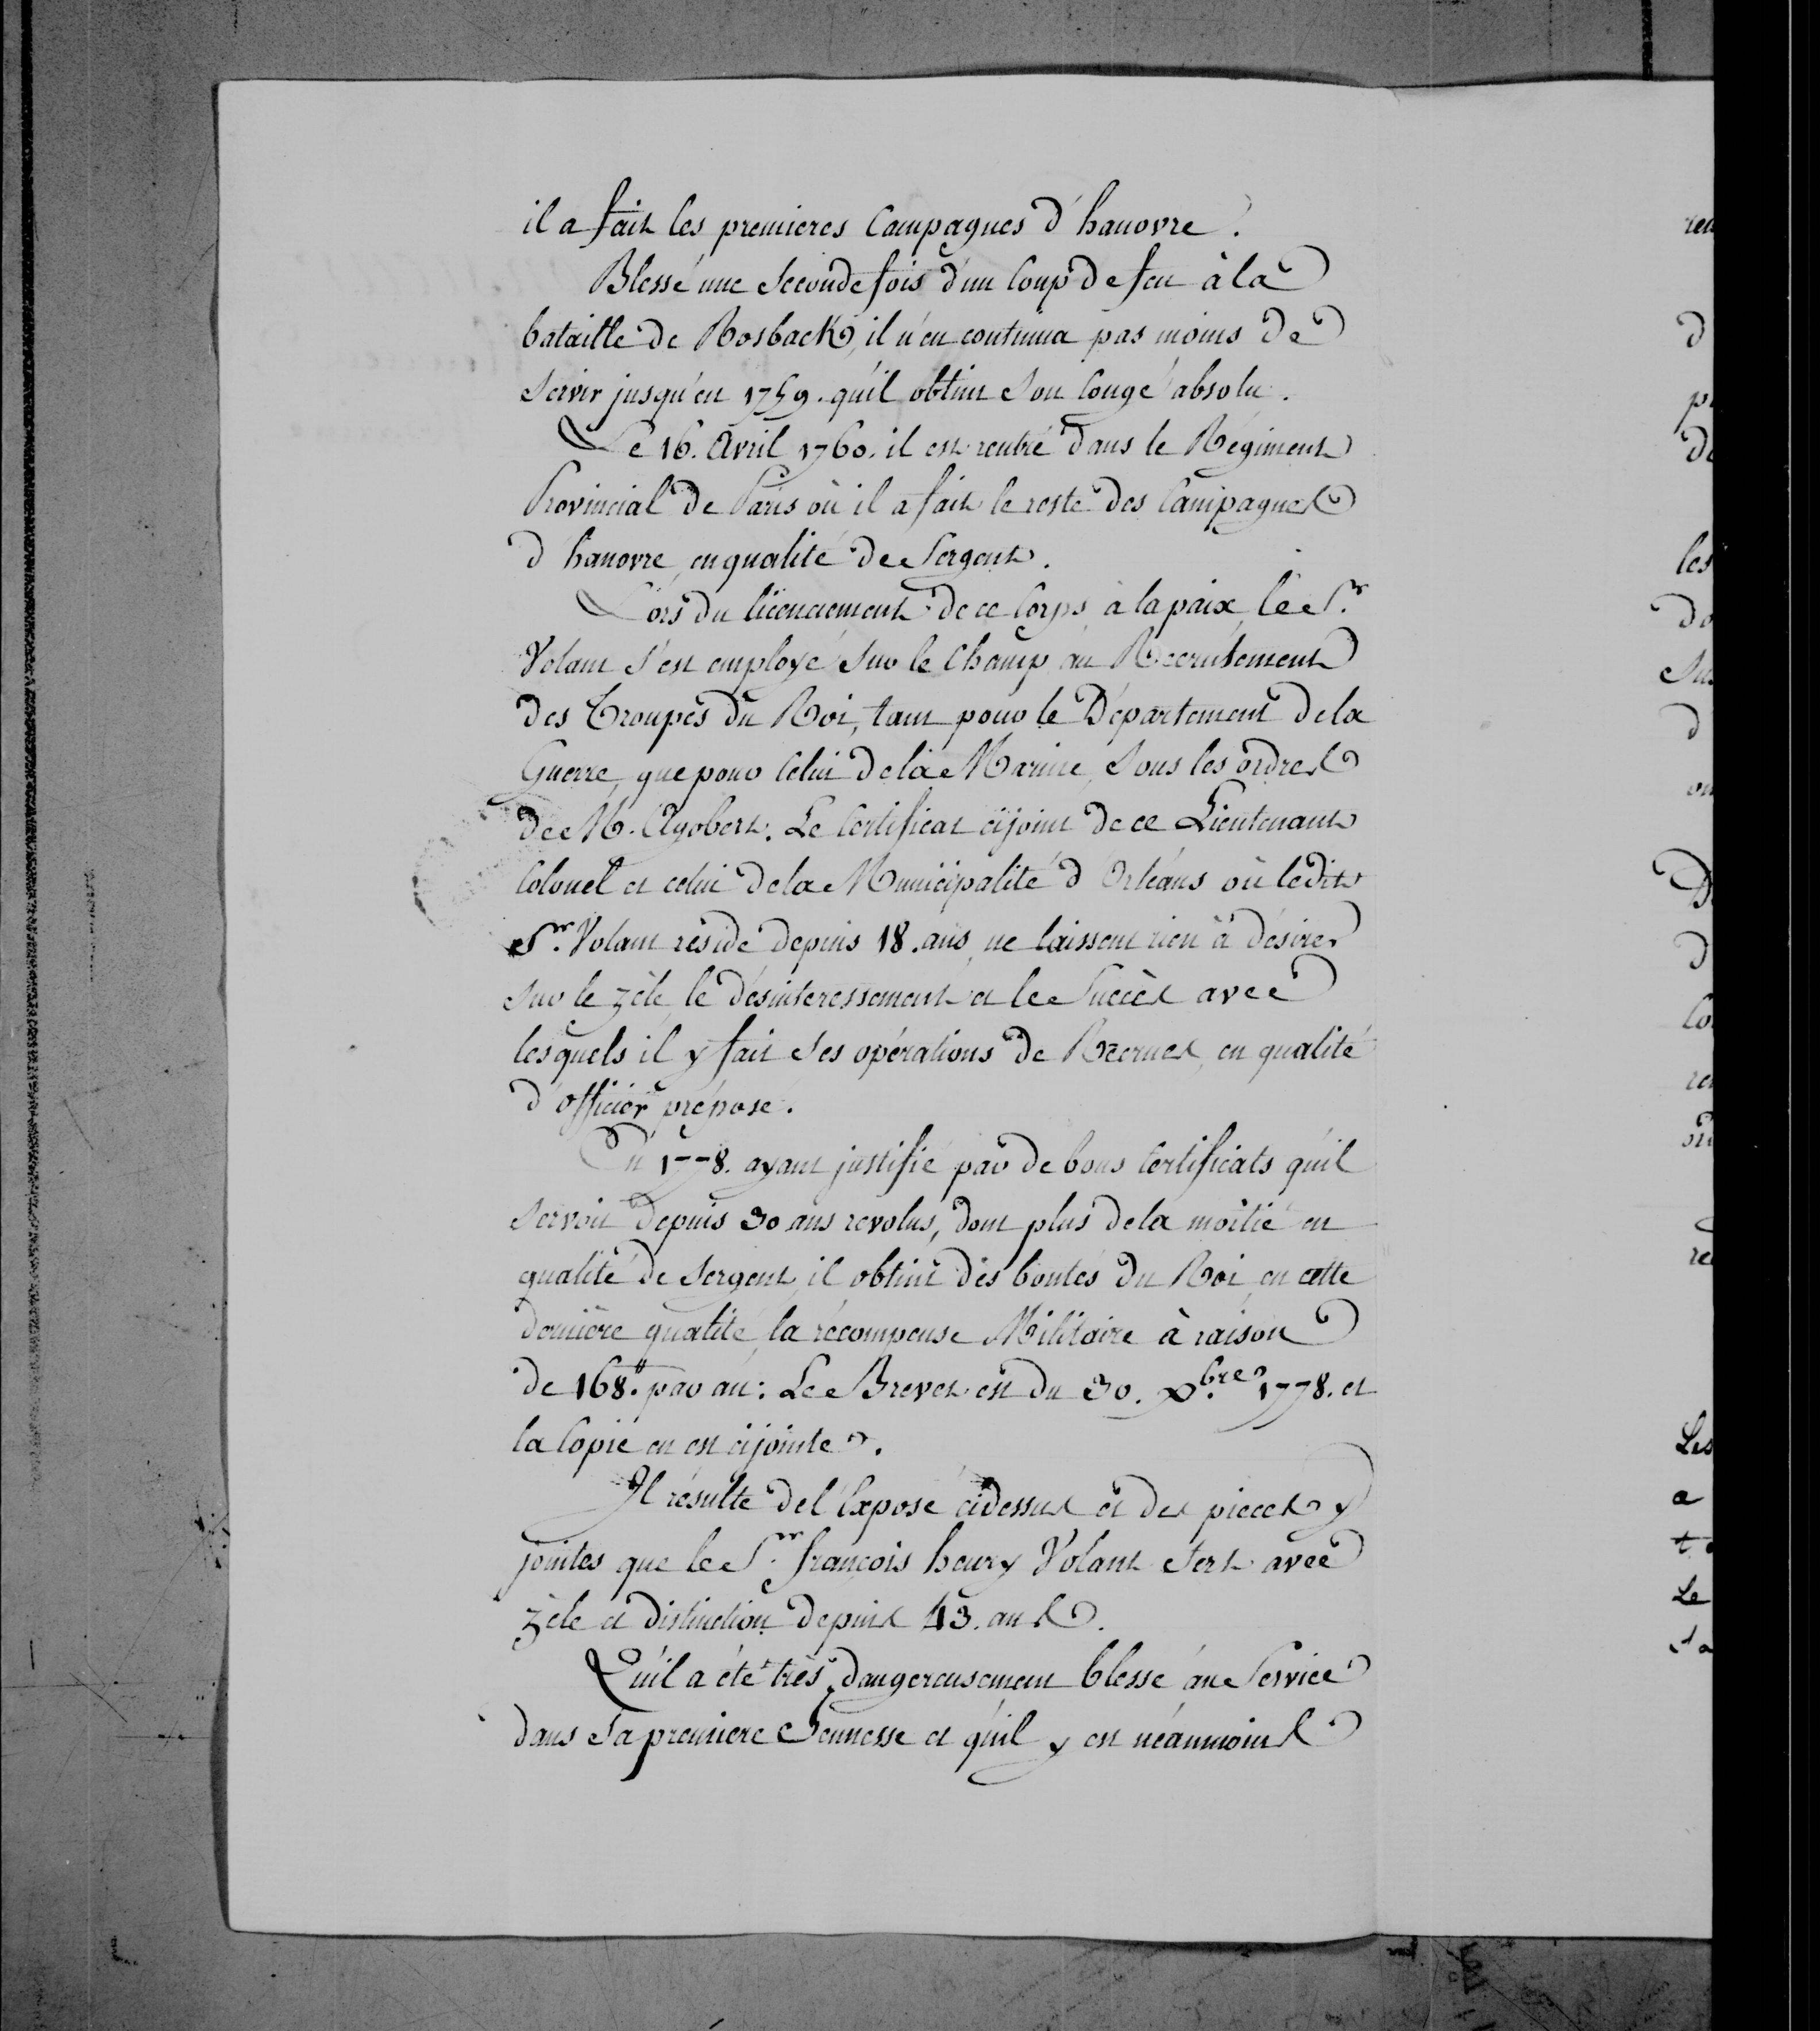 il a fait les premieres Campagnes d'hanovre.
Blessé une seconde fois d'un Coup de feu à la
bataille de Rosback, il n'en continua pas moins de
servir jusqu'en 1759. qu'il obtint son Congé absolu.
Le 16. Avril 1760. il est rentré dans le Régiment
Provincial de Paris où il a fait le reste des Campagnes
d'hanovre, en qualité de Sergent.
Lors du licenciement de ce Corps, à la paix, le Sr.
Volant s'est employé sur le Champ au Recrutement
des Troupes du Roi, tant pour le Département de la
Guerre, que pour Celui de la Marine, sous les ordres
de M. Agobert. Le Certificat cijoint de ce Lieutenant
Colonel et celui de la Municipalité d'Orléans où ledit
Sr. Volant réside depuis 18. ans, ne laissent rien à désirer
sur le zèle, le désinteressement et le Succès avec
lesquels il y fait ses opérations de Recrues, en qualité
d'officier préposé.
En 1778. ayant justifié par de bons Certificats qu'il
servoit depuis 30 ans revolus, dont plus de la moitié en
qualité de Sergent, il obtint des bontés du Roi, en cette
dernière qualité, la récompense Militaire à raison
de 168.# par an: Le Brevet est du 30. Xbre. 1778. et
la Copie en est cijointe.
Il résulte de l'Exposé cidessus et des pieces y
jointes que le Sr. françois henry Volant sert avec
zèle et distinction depuis 43. ans.
Qu'il a été très dangereusement blessé au Service
dans sa premiere Jeunesse et qu'il y est néanmoins